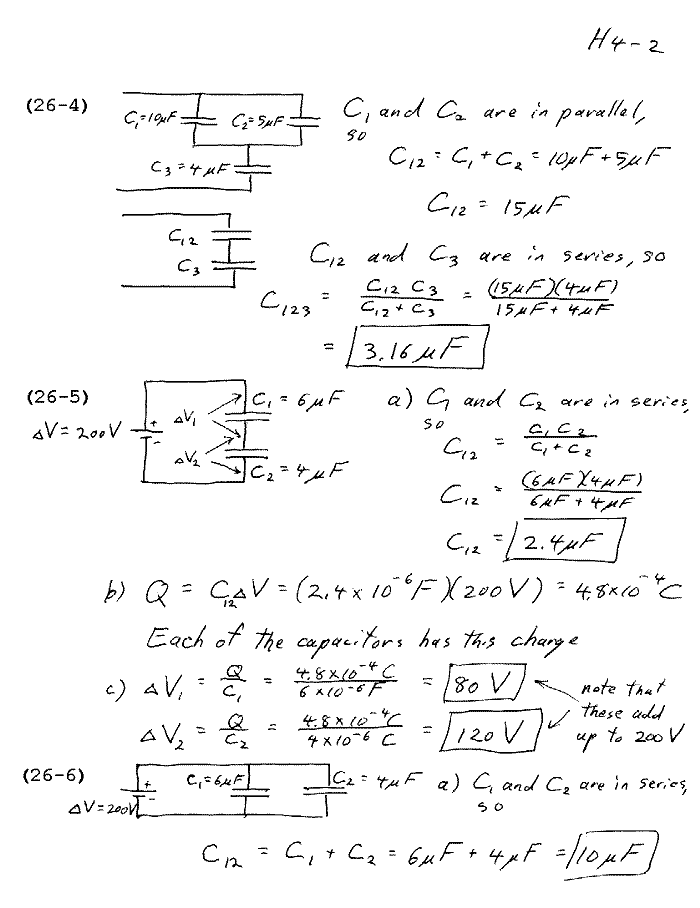 H4-2
(26-4)
C₁=10μF C₂=5μF
C₃=4μF
C₁ and C₂ are in parallel,
so
C₁₂ = C₁ + C₂ = 10μF + 5μF
C₁₂ = 15μF
C₁₂
C₃
C₁₂ and C₃ are in series, so
C₁₂₃ = C₁₂ C₃ / C₁₂ + C₃ = (15μF)(4μF) / 15μF + 4μF
= 3.16 μF
(26-5)
ΔV = 200V + -
ΔV₁ C₁ = 6μF
ΔV₂ C₂ = 4μF
a) C₁ and C₂ are in series,
so
C₁₂ = C₁ C₂ / C₁ + C₂
C₁₂ = (6μF)(4μF) / 6μF + 4μF
C₁₂ = 2.4μF
b) Q = C₁₂ΔV = (2.4 x 10⁻⁶F)(200V) = 4.8x10⁻⁴C
Each of the capacitors has this charge
c) ΔV₁ = Q / C₁ = 4.8x10⁻⁴C / 6x10⁻⁶F = 80 V
ΔV₂ = Q / C₂ = 4.8x10⁻⁴C / 4x10⁻⁶ C = 120 V
note that
these add
up to 200V
(26-6)
ΔV=200V + - C₁=6μF C₂ = 4μF
a) C₁ and C₂ are in series,
so
C₁₂ = C₁ + C₂ = 6μF + 4μF = 10μF